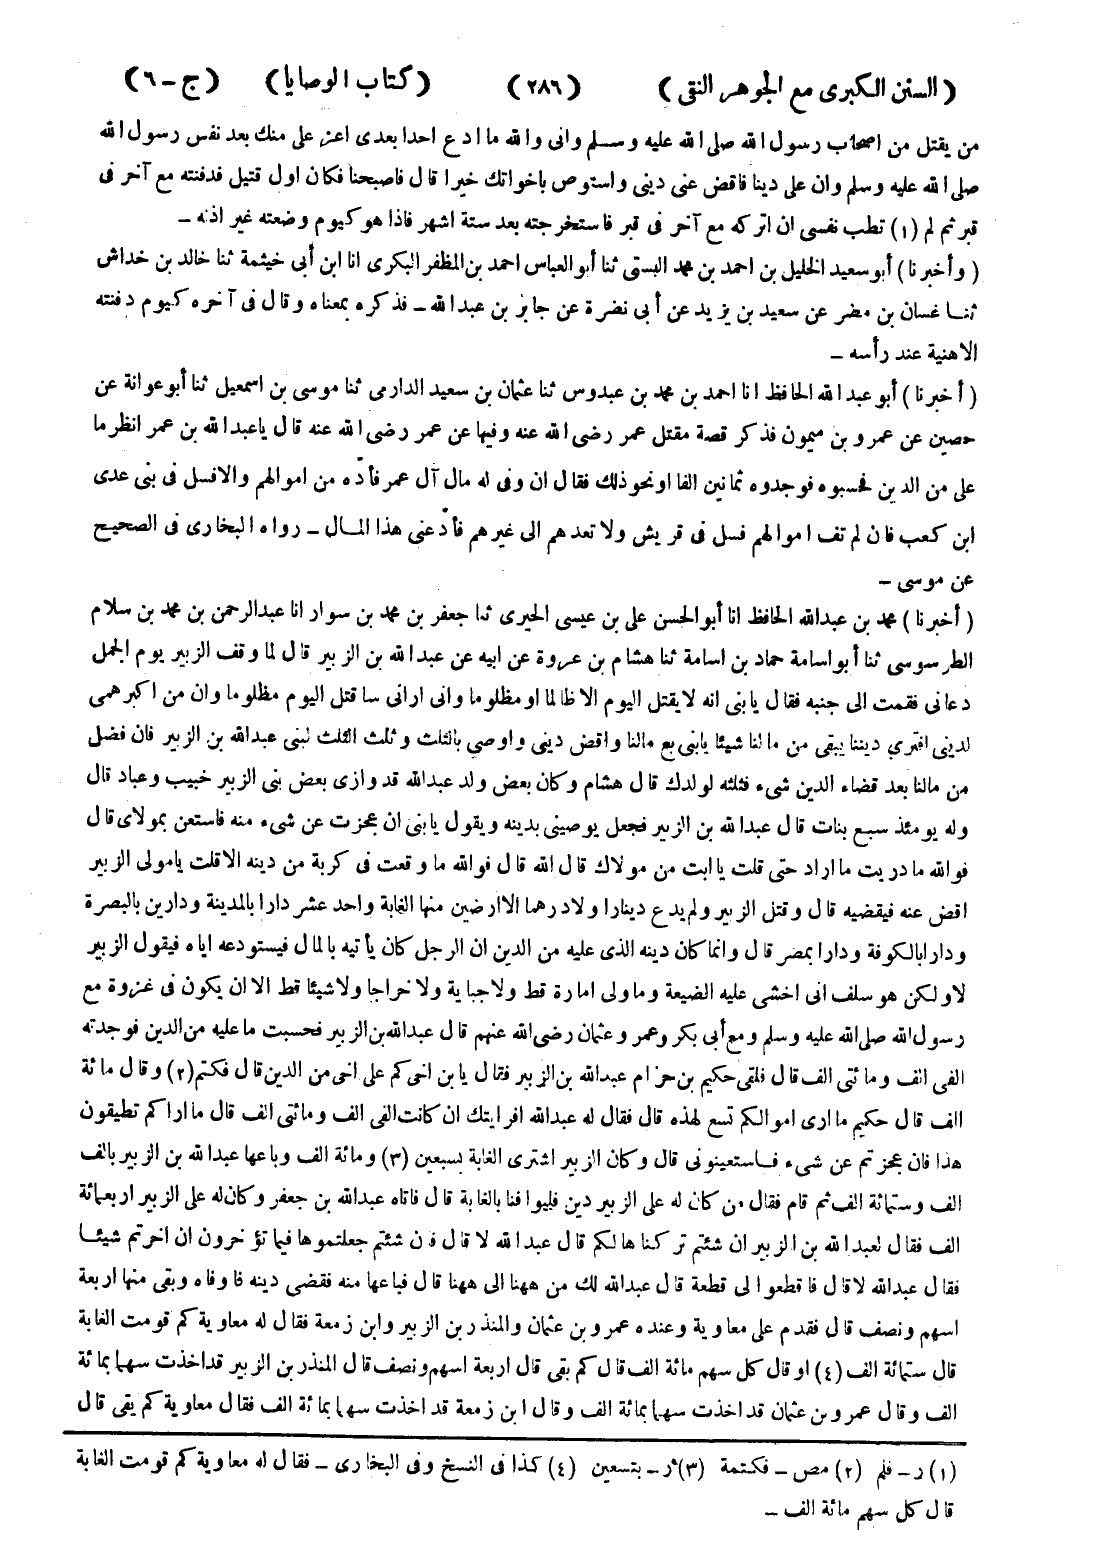 (السنن الكبرى مع الجوهر النقى) (٢٨٦) (كتاب الوصايا) (ج-٦)
من يقتل من اصحاب رسول الله صلى الله عليه وسلم وانى والله ما ادع احدا بعدى اعز على منك بعد نفس رسول الله
صلى الله عليه وسلم وان على دينا فاقض عنى دينى واستوص باخواتك خيرا قال فاصبحنا فكان اول قتيل فدفنته مع آخر فى
قبر ثم لم (١) تطب نفسى ان اتركه مع آخر فى قبر فاستخرجته بعد ستة اشهر فاذا هو كيوم وضعته غير اذنه -
(وأخبرنا) أبو سعيد الخليل بن احمد بن محمد البستى ثنا أبو العباس احمد بن المظفر البكرى انا ابن أبى خيثمة ثنا خالد بن خداش
ثنا غسان بن مضر عن سعيد بن يزيد عن أبى نضرة عن جابر بن عبد الله - فذكره بمعناه وقال فى آخره كيوم دفنته
الاهنية عند رأسه -
(أخبرنا) أبو عبد الله الحافظ انا احمد بن محمد بن عبدوس ثنا عثمان بن سعيد الدارمى ثنا موسى بن اسمعيل ثنا أبو عوانة عن
حصين عن عمرو بن ميمون فذكر قصة مقتل عمر رضى الله عنه وفيها عن عمر رضى الله عنه قال يا عبد الله بن عمر انظر ما
على من الدين فحسبوه فوجدوه ثمانين الفا او نحو ذلك فقال ان وفى له مال آل عمر فأدّه من اموالهم والا فسل فى بنى عدى
ابن كعب فان لم تف اموالهم فسل فى قريش ولا تعدهم الى غيرهم فأدّ عنى هذا المال - رواه البخارى فى الصحيح
عن موسى -
(أخبرنا) محمد بن عبدالله الحافظ انا أبو الحسن على بن عيسى الحيرى ثنا جعفر بن محمد بن سوار انا عبدالرحمن بن محمد بن سلام
الطرسوسى ثنا أبو اسامة حماد بن اسامة ثنا هشام بن عروة عن ابيه عن عبد الله بن الزبير قال لما وقف الزبير يوم الجمل
دعانى فقمت الى جنبه فقال يا بنى انه لا يقتل اليوم الا ظالما او مظلوما وانى ارانى ساقتل اليوم مظلوما وان من اكبر همى
لدينى افترى ديننا يبقى من مالنا شيئا يابنى بع مالنا واقض دينى واوصى بالثلث وثلث الثلث لبنى عبدالله بن الزبير فان فضل
من مالنا بعد قضاء الدين شىء فثلثه لولدك قال هشام وكان بعض ولد عبدالله قد وازى بعض بنى الزبير خبيب وعباد قال
وله يومئذ سبع بنات قال عبدالله بن الزبير فجعل يوصينى بدينه ويقول يا بنى ان عجزت عن شىء منه فاستعن بمولاى قال
فوالله ما دريت ما اراد حتى قلت يا ابت من مولاك قال الله قال فوالله ما وقعت فى كربة من دينه الا قلت يا مولى الزبير
اقض عنه فيقضيه قال وقتل الزبير ولم يدع دينارا ولا درهما الا ارضين منها الغابة واحد عشر دارا بالمدينة ودارين بالبصرة
ودارا بالكوفة ودارا بمصر قال وانما كان دينه الذى عليه من الدين ان الرجل كان يأتيه بالمال فيستودعه اياه فيقول الزبير
لا ولكن هو سلف انى اخشى عليه الضيعة وما ولى امارة قط ولا جباية ولا خراجا ولا شيئا قط الا ان يكون فى غزوة مع
رسول الله صلى الله عليه وسلم ومع أبى بكر وعمر وعثمان رضى الله عنهم قال عبدالله بن الزبير فحسبت ما عليه من الدين فوجدته
الفى الف ومائتى الف قال فلقى حكيم بن حزام عبدالله بن الزبير فقال يا بن اخى كم على اخى من الدين قال فكتم (٢) وقال مائة
الف قال حكيم ما ارى اموالكم تسع لهذه قال فقال له عبدالله افرايتك ان كانت الفى الف ومائتى الف قال ما اراكم تطيقون
هذا فان عجزتم عن شىء فاستعينونى قال وكان الزبير اشترى الغابة بسبعين (٣) ومائة الف وباعها عبدالله بن الزبير بالف
الف وستمائة الف ثم قام فقال من كان له على الزبير دين فليوافنا بالغابة قال فاتاه عبدالله بن جعفر وكان له على الزبير اربعمائة
الف فقال لعبدالله بن الزبير ان شئتم تركناها لكم قال عبدالله لا قال فان شئتم جعلتموها فيما تؤخرون ان اخرتم شيئا
فقال عبدالله لا قال فاقطعوا لى قطعة قال عبدالله لك من ههنا الى ههنا قال فباعها منه فقضى دينه فاوفاه وبقى منها اربعة
اسهم ونصف قال فقدم على معاوية وعنده عمرو بن عثمان والمنذر بن الزبير وابن زمعة فقال له معاوية كم قومت الغابة
قال ستمائة الف (٤) او قال كل سهم مائة الف قال كم بقى قال اربعة اسهم ونصف قال المنذر بن الزبير قد اخذت سهما بمائة
الف وقال عمرو بن عثمان قد اخذت سهما بمائة الف وقال ابن زمعة قد اخذت سهما بمائة الف فقال معاوية كم بقى قال
(١) ر - فلم (٢) مص - فكتمة (٣) ر - بتسعين (٤) كذا فى النسخ وفى البخارى - فقال له معاوية كم قومت الغابة
قال كل سهم مائة الف -